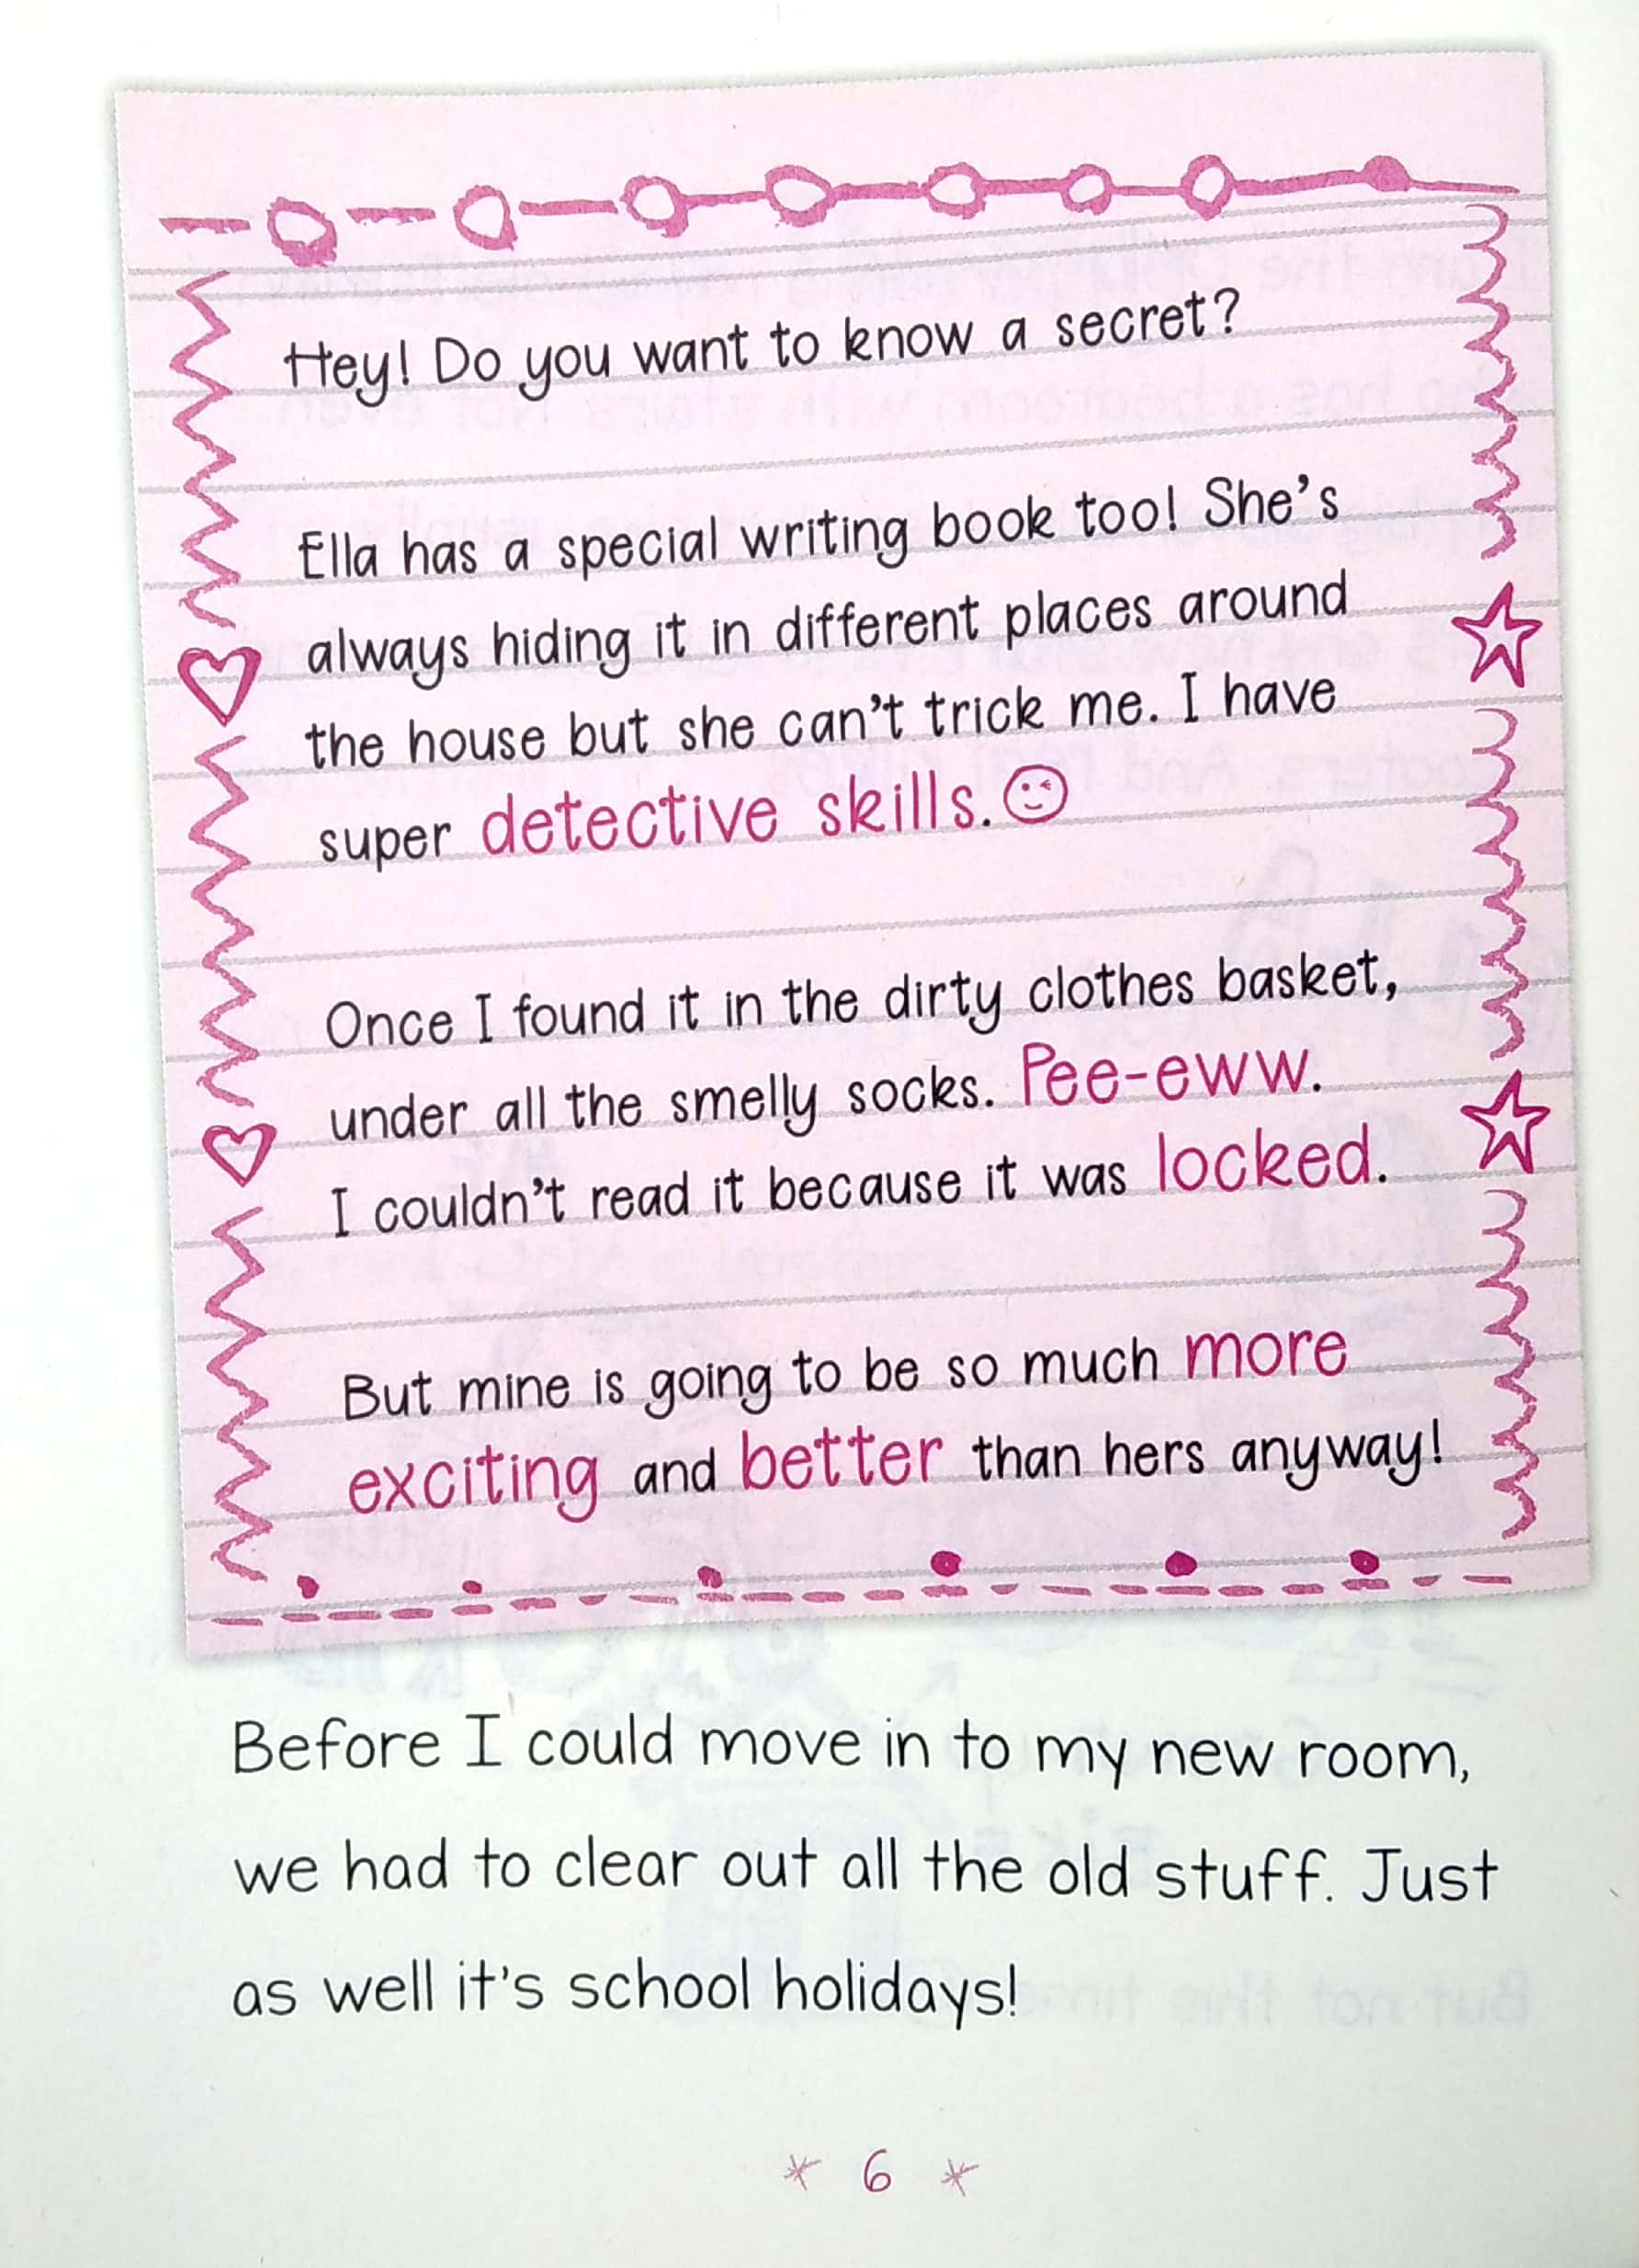 Hey! Do you want to know a secret?
Ella has a special writing book too! She's
always hiding it in different places around
the house but she can't trick me. I have
super detective skills.
Once I found it in the dirty clothes basket,
under all the smelly socks. Pee-eww.
I couldn't read it because it was locked.
But mine is going to be so much more
exciting and better than hers anyway!
Before I could move in to my new room,
we had to clear out all the old stuff. Just
as well it's school holidays!
* 6 *